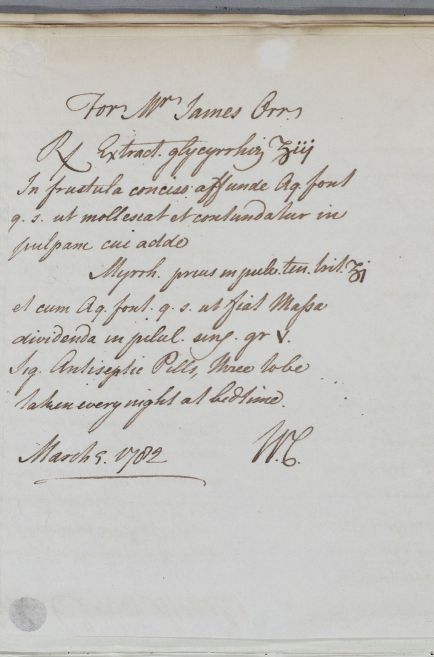 For Mr James Orr.
℞ Extract. glycyrrhiz ʒiij
In frustula conciso affunde Aq. font
q. s. ut mollescat et contundatur in
pulpam cui adde
Myrrh. prius in pulv. ten. trit. ʒj
et cum Aq. font. q. s. ut fiat Massa
dividenda in pilul. sing. gr v.
Sig. Antiseptic Pills, three to be
taken every night at bedtime.
March 5. 1782 W.C.